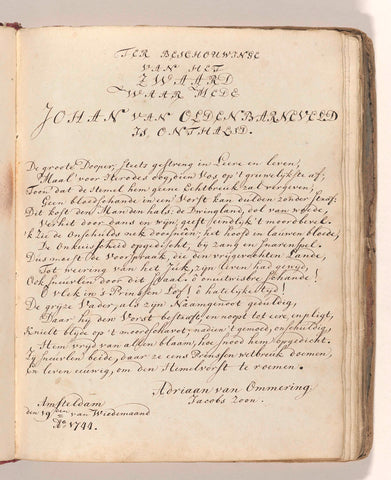 TER BESCHOUWINGE
VAN HET
ZWAARD
WAAR MEDE
JOHAN VAN OLDENBARNEVELD
IS ONTHALSD.
De groote Dooper, steets gestreng in Leere en leven,
Maal voor Herodes oog, dien Vos op 't gruwelykste af;
Toon dat de Hemel hem geene Echtbreuk zal vergeven;
Geen bloedschande in een Vorst kan dulden zonder straf;
Dit kost den Man den hals; de Dwingland, dol van woede,
Verhit door dans en wyn, geeft eindelyk 't moordbevel.
'k Zie de Onschuld's nek doorsneên; het hoofd in lauwen bloede,
De onkuisscheid opgedischt, by zang en Snarenspel.
Dus moest de Voorspraak, die den vrygevochten Lande,
Tot weering van het Juk, zyn leven had gewyd,
Ook sneuvlen door dit Staal: ô onuitwisb're schande!
O vlek in 's Prinssen Lof! ô hatelyke tyd!
De gryze Vader, als zyn Naamgenoot geduldig,
Daar hy den Vorst bestraft, en noopt tot eere, en pligt,
Knielt blyde op 't moordschavot; naden 't gemoed, onschuldig,
Hem vryd van allen blaam, hoe snood hem opgedicht.
Zy sneuvlen beide, daar ze eens Prinssen wetbreuk doemen,
En leven eeuwig, om den Hemelvorst te roemen.
Adriaan van Ommering
Jacobs zoon.
Amsterdam
den 19den van Wiedemaand
Ao. 1744.